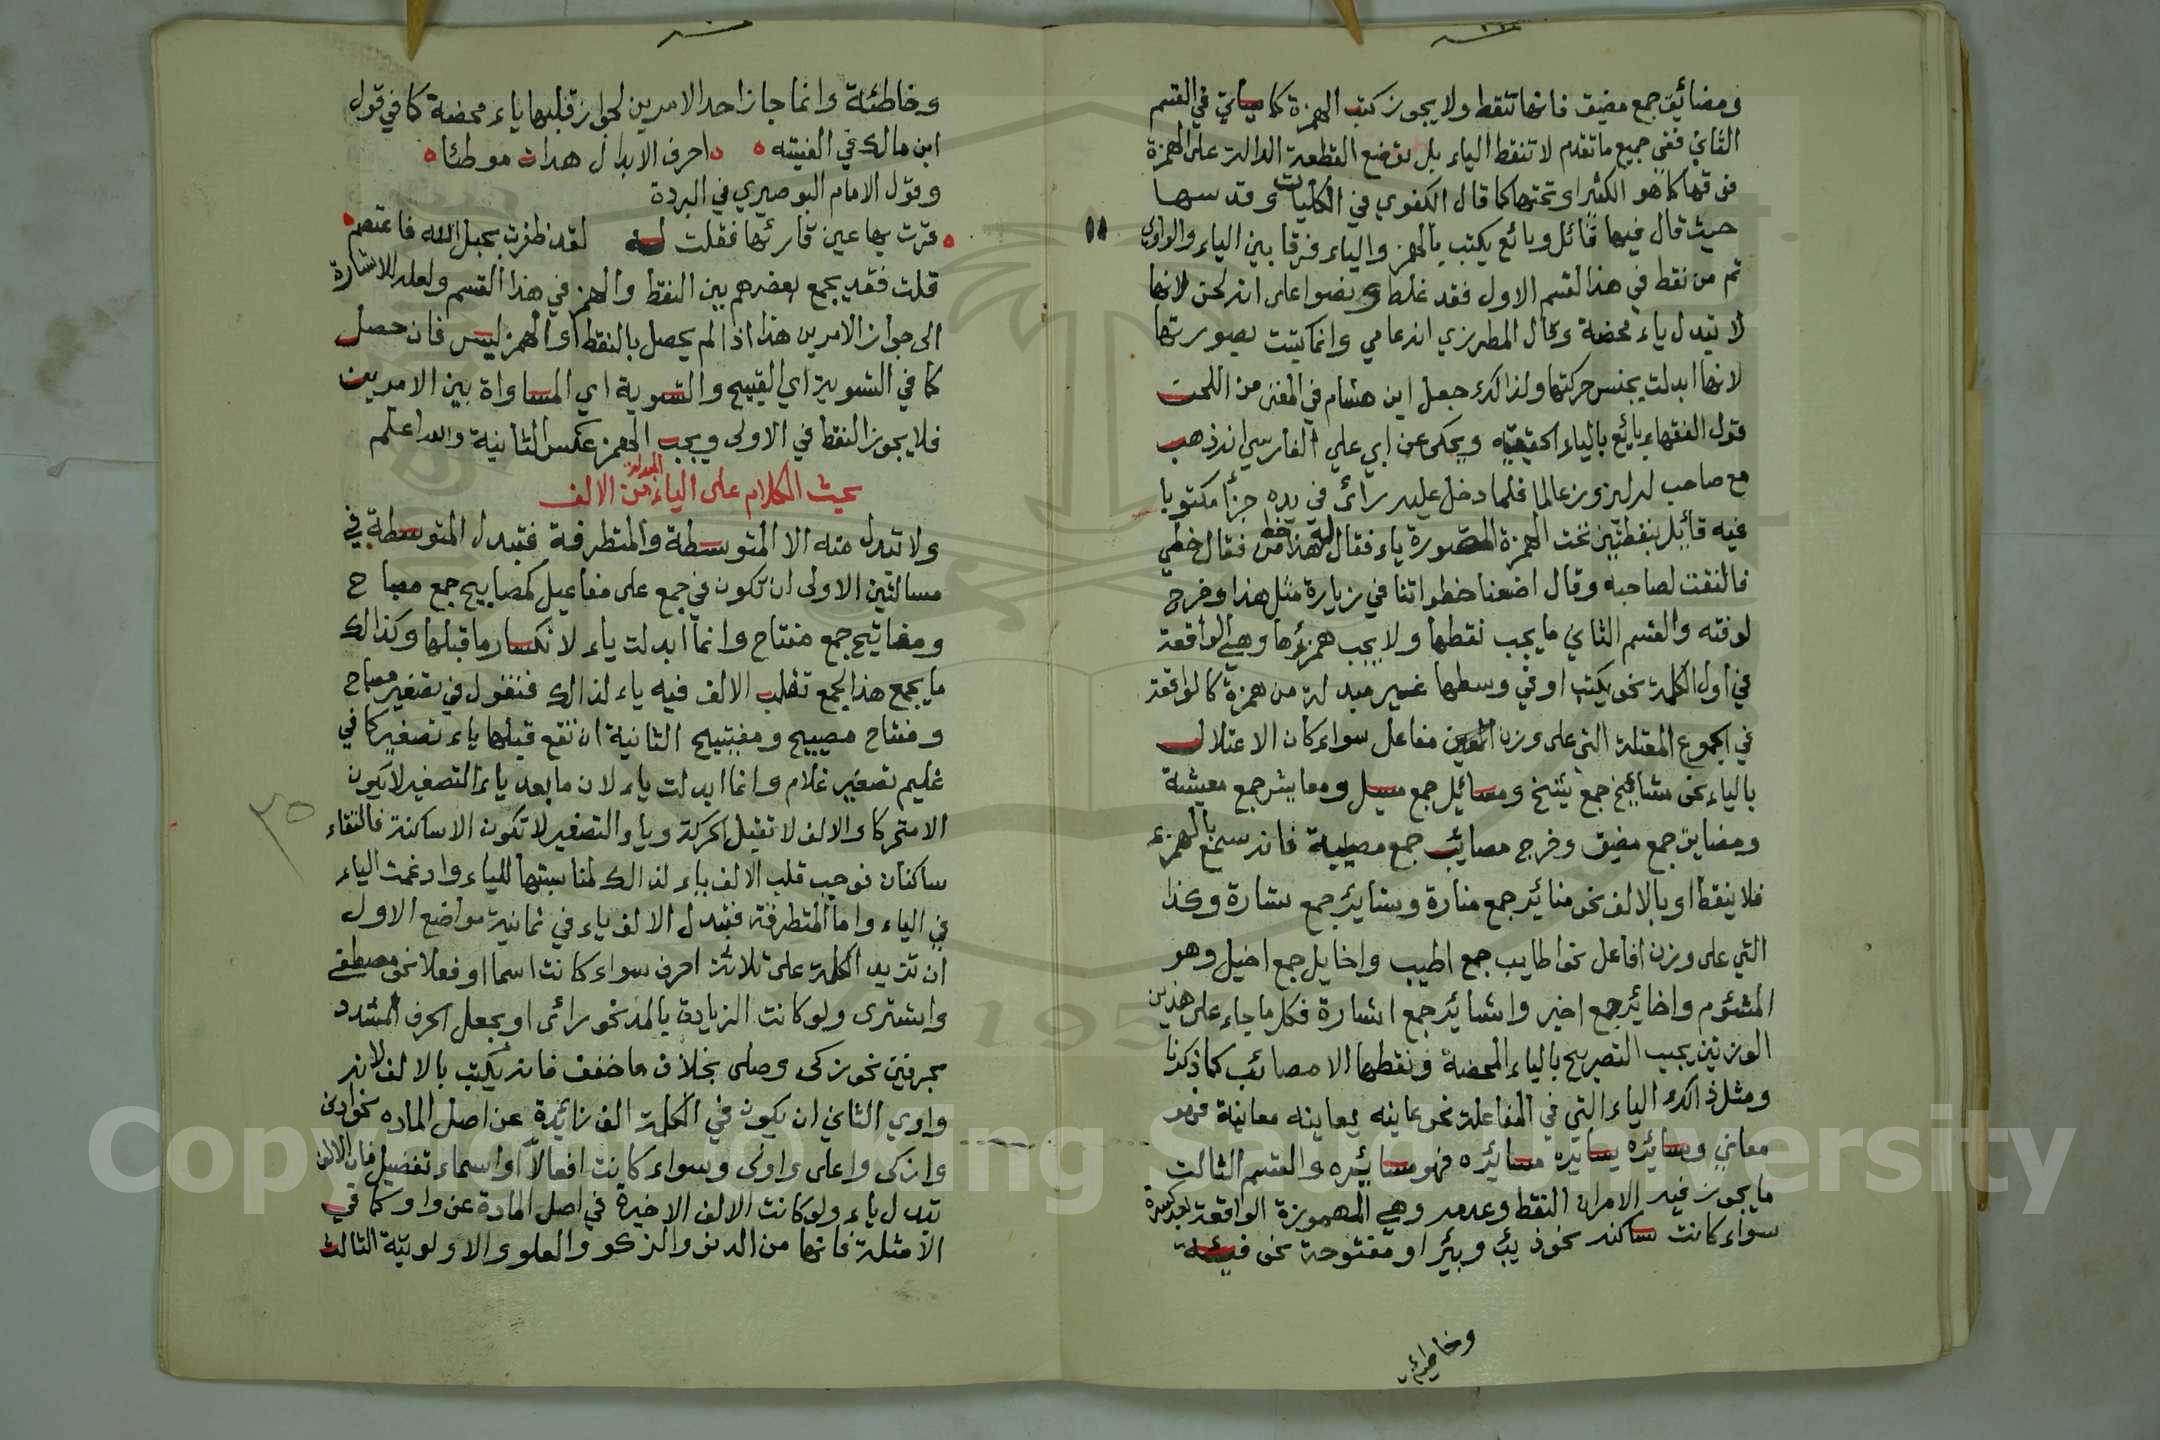 ومضائق جمع مضيق فانها تنقط ولا يجوز كتب الهمزة كما سياتي في القسم
الثاني ففي جميع ما تقدم لا تنقط الياء بل توضع القطعة الدالة على الهمزة
فوقها كما هو الكثير او تحتها كما قال الكفوي في الكليات وقد سها
حيث قال فيها قائل وبائع يكتب بالهمز والياء فرقا بين الياء والواوي
ثم من نقط في هذا القسم الاول فقد غلط ونصوا على انه لحن لانها
لا تبدل ياء محضة وقال المطرزي انه عامي وانما كتبت بصورتها
لانها ابدلت بجنس حركتها ولذالك جعل ابن هشام في المغنى من اللحن
قول الفقهاء بايع بالياء الحقيقيه ويحكى عن ابي علي الفارسي انه ذهب
مع صاحب له ليزور عالما فلما دخل عليه رائ في يده جزأ مكتوبا
فيه قايل بنقطتين تحت الهمزة المصورة ياء فقال له هذا خط من فقال خطي
فالتفت لصاحبه وقال اضعنا خطواتنا في زيارة مثل هذا وخرج
لوقته والقسم الثاني ما يجب نقطها ولا يجب همزها وهي الواقعة
في اول الكلمة نحو يكتب او في وسطها غير مبدلة من همزة كالواقعة
في الجموع المعتلة التي على وزن مفاعل سواء كان الاعتلال
بالياء نحو مشائخ جمع شيخ ومسائيل جمع مسيل ومعايش جمع معيشة
ومضايق جمع مضيق وخرج مصائب جمع مصيبة فانه سمع بالهمزة
فلا ينقط او بالالف نحو منائر جمع منارة وبشاير جمع بشارة وكذا
التي على وزن افاعل نحو اطايب جمع اطيب واخايل جمع اخيل وهو
المشئوم واخائر جمع اخير واشائر جمع اشارة فكل ما جاء على هذين
الوزنين يجب التصريح بالياء المحضة ونقطها الا مصائب كما ذكرنا
ومثل ذالك الياء التي في المفاعلة نحو عاينه يعاينه معاينة فهو
معاين وسائره يسايره مسائره فهو مسايره والقسم الثالث
ما يجوز فيه الامران النقط وعدمه وهي المهموزة الواقعة بعد كسرة
سواء كانت ساكنه نحو ذئب وبئر او مفتوحة نحو فئة
وخاطئة وانما جاز احد الامرين لجواز قلبها ياء محضة كما في قول
ابن مالك في الفيته احرف الابدال هدات موطئا
وقول الامام البوصيري في البردة
قرت بها عين قارئها فقلت له لقد ظفرت بحبل الله فاعتصم
قلت فقد يجمع بعضهم بين النقط والهمز في هذا القسم ولعله للاشارة
الى جواز الامرين هذا اذا لم يحصل بالنقط او الهمز لبس فان حصل
كما في الشوية اي القبيح والتسوية اي المساواة بين الامرين
فلا يجوز النقط في الاولى ويجب الهمز عكس الثانية والله اعلم
بحث الكلام على الياء المبدلة من الالف
ولا تبدل منه الا المتوسطة والمتطرفة فتبدل المتوسطة في
مسالتين الاولى ان تكون في جمع على مفاعيل كمصابيح جمع مصباح
ومفاتيح جمع مفتاح وانما ابدلت ياء لانكسار ما قبلها وكذالك
ما يجمع هذا الجمع تقلب الالف فيه ياء لذالك فتقول في تصغير مصباح
ومفتاح مصيبيح ومفيتيح الثانية ان تقع قبلها ياء تصغير كما في
غليم تصغير غلام وانما ابدلت ياء لان ما بعد ياء التصغير لا يكون
الا متحركا والالف لا تقبل الحركة وياء التصغير لا تكون الا ساكنة فالتقاء
ساكنان فوجب قلب الالف ياء لذالك لمناسبتها للياء وادغمت الياء
في الياء واما المتطرفة فتبدل الالف ياء في ثمانية مواضع الاول
ان تزيد الكلمة على ثلاثة احرف سواء كانت اسما او فعلا نحو مصطفى
واشترى ولو كانت الزيادة بالمد نحو رائى او بجعل الحرف المشدد
بحرفين نحو زكى وصلى بخلاف ما خفف فانه يكتب بالالف لانه
واوي الثاني ان يكون في الكلمة الف زائدة عن اصل الماده نحو ادنى
وازكى واعلى واولى وسواء كانت افعالا او اسماء تفضيل فان الالف
تبدل ياء ولو كانت الالف الاخيرة في اصل المادة عن واو كما في
الامثلة فانها من الدنو والزكو والعلو والاولوية الثالث
٣٥
Copyright © King Saud University
1957